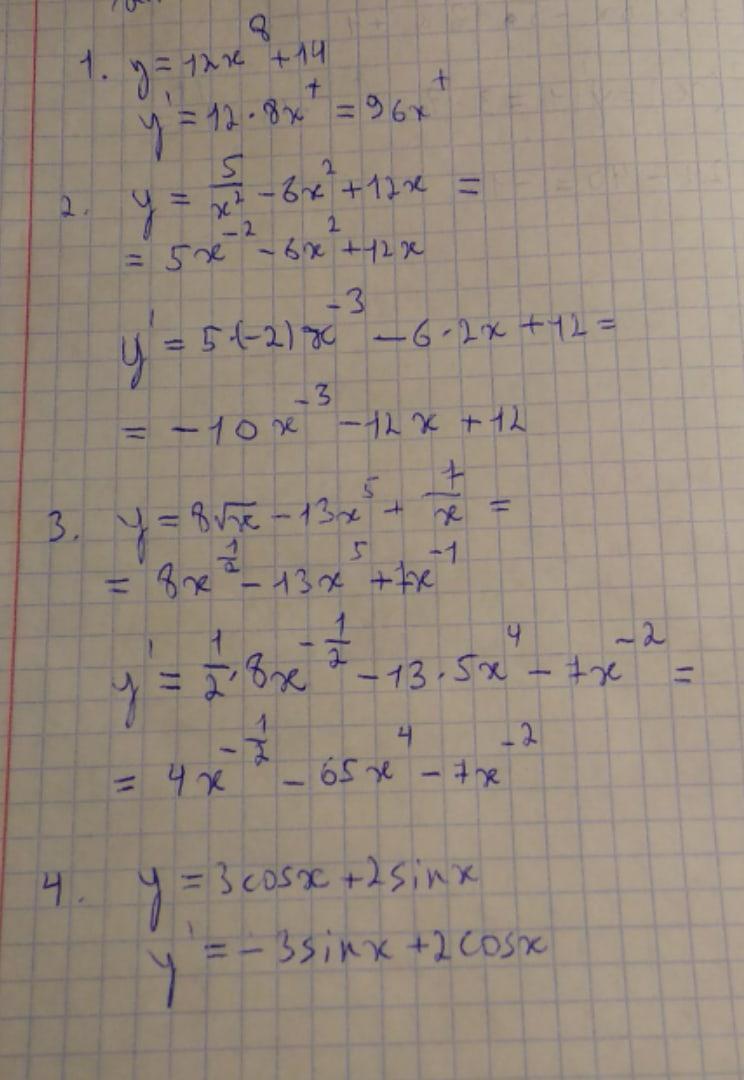 1. y = 12x⁸ + 14
y' = 12 · 8x⁷ = 96x⁷
2. y = 5/x² - 6x² + 12x =
= 5x⁻² - 6x² + 12x
y' = 5·(-2)x⁻³ - 6·2x + 12 =
= -10x⁻³ - 12x + 12
3. y = 8√x - 13x⁵ + 7/x =
= 8x^(1/2) - 13x⁵ + 7x⁻¹
y' = 1/2 · 8x^(-1/2) - 13·5x⁴ - 7x⁻² =
= 4x^(-1/2) - 65x⁴ - 7x⁻²
4. y = 3cosx + 2sinx
y' = -3sinx + 2cosx